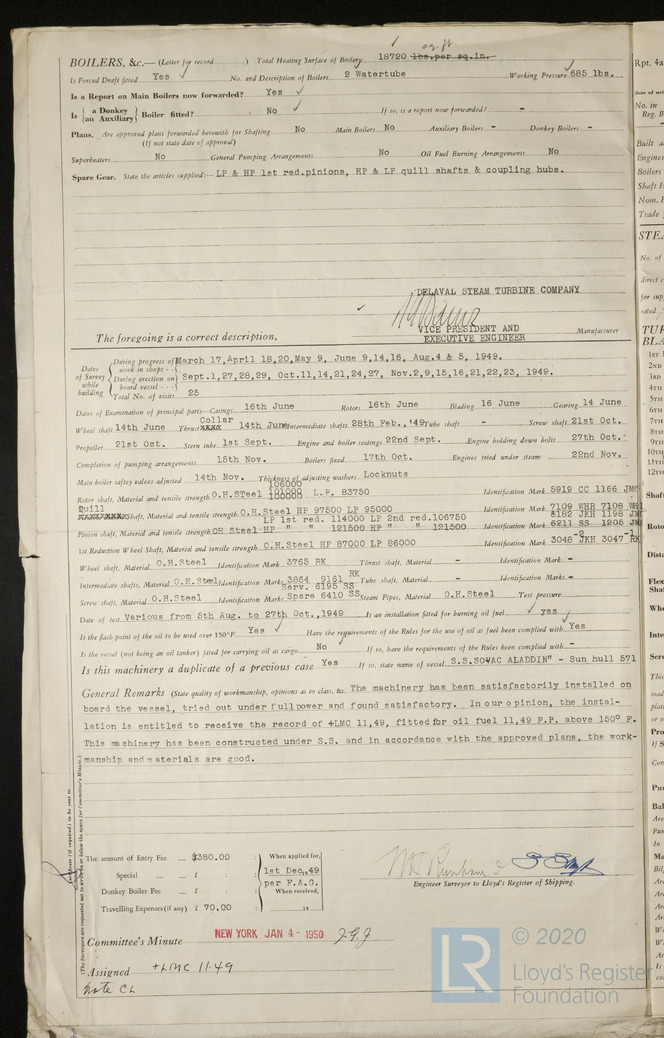 sq.ft
BOILERS, &c.— (Letter for record ) Total Heating Surface of Boilers 18720 lbs.per sq.in.
Is Forced Draft fitted Yes ✓ No. and Description of Boilers 2 Watertube Working Pressure 685 lbs.
Is a Report on Main Boilers now forwarded? Yes ✓
Is { a Donkey / an Auxiliary } Boiler fitted? No ✓ If so, is a report now forwarded? -
Plans. Are approved plans forwarded herewith for Shafting No Main Boilers No Auxiliary Boilers - Donkey Boilers -
(If not state date of approval)
Superheaters No General Pumping Arrangements No Oil Fuel Burning Arrangements No
Spare Gear. State the articles supplied:— LP & HP 1st red.pinions, HP & LP quill shafts & coupling hubs.
DELAVAL STEAM TURBINE COMPANY
VICE PRESIDENT AND
The foregoing is a correct description, EXECUTIVE ENGINEER Manufacturer
Dates of Survey while building
During progress of work in shops - - March 17,April 18,20,May 9, June 9,14,16, Aug.4 & 5, 1949.
During erection on board vessel - - - Sept.1,27,28,29, Oct.11,14,21,24,27, Nov.2,9,15,16,21,22,23, 1949.
Total No. of visits 25
Dates of Examination of principal parts—Casings 16th June Rotors 16th June Blading 16 June Gearing 14 June
Collar
Wheel shaft 14th June Thrust xxxx 14th June Intermediate shafts 28th Feb.,'49 Tube shaft - Screw shaft 21st Oct.
Propeller 21st Oct. Stern tube 1st Sept. Engine and boiler seatings 22nd Sept. Engine holding down bolts 27th Oct.
Completion of pumping arrangements 15th Nov. Boilers fixed 17th Oct. Engines tried under steam 22nd Nov.
Main boiler safety valves adjusted 14th Nov. Thickness of adjusting washers Locknuts
106000
101000
Rotor shaft, Material and tensile strength O.H.STeel 100000 L.P. 83750 Identification Mark 5919 CC 1166 JMC
Quill
xxxxxxxx Shaft, Material and tensile strength O.H.Steel HP 97500 LP 95000 Identification Mark 7109 WHR 7108 WHR
LP 1st red. 114000 LP 2nd red.106750 8182 JKH 1198 JMC
Pinion shaft, Material and tensile strength OH Steel HP " " 121500 HP " " 121500 Identification Mark 6211 SS 1205 JMC
1st Reduction Wheel Shaft, Material and tensile strength O.H.Steel HP 87000 LP 86000 Identification Mark 3048-2 JKH 3047-1 RK
Wheel shaft, Material O.H.Steel Identification Mark 3765 RK Thrust shaft, Material - Identification Mark -
Intermediate shafts, Material O.H.Steel Identification Marks 3864 9161 RK Tube shaft, Material - Identification Marks -
Serv. 6195 SS
Screw shaft, Material O.H.Steel Identification Marks Spare 6410 SS Steam Pipes, Material O.H.Steel Test pressure
Date of test Various from 5th Aug. to 27th Oct.,1949 Is an installation fitted for burning oil fuel ✓ yes
Is the flash point of the oil to be used over 150°F. Yes ✓ Have the requirements of the Rules for the use of oil as fuel been complied with Yes
Is the vessel (not being an oil tanker) fitted for carrying oil as cargo No If so, have the requirements of the Rules been complied with -
Is this machinery a duplicate of a previous case Yes If so, state name of vessel S.S.SOVAC ALADDIN" - Sun hull 571
General Remarks (State quality of workmanship, opinions as to class, &c. The machinery has been satisfactorily installed on
board the vessel, tried out under fullpower and found satisfactory. In our opinion, the instal-
lation is entitled to receive the record of +LMC 11,49, fitted for oil fuel 11,49 F.P. above 150° F.
This machinery has been constructed under S.S. and in accordance with the approved plans, the work-
manship and materials are good.
The amount of Entry Fee .... $380.00 When applied for,
Special .... £ : : 1st Dec, 19 49
Donkey Boiler Fee .... £ : : per F.A.G.
When received,
Travelling Expenses (if any) £ 70.00 : 19
Engineer Surveyor to Lloyd's Register of Shipping.
Committee's Minute NEW YORK JAN 4 - 1950
Assigned +LMC 11.49
Note CL
(The Surveyors are requested not to write on or below the space for Committee's Minute.)
LR © 2020
Lloyd's Register
Foundation
Rpt. 4a